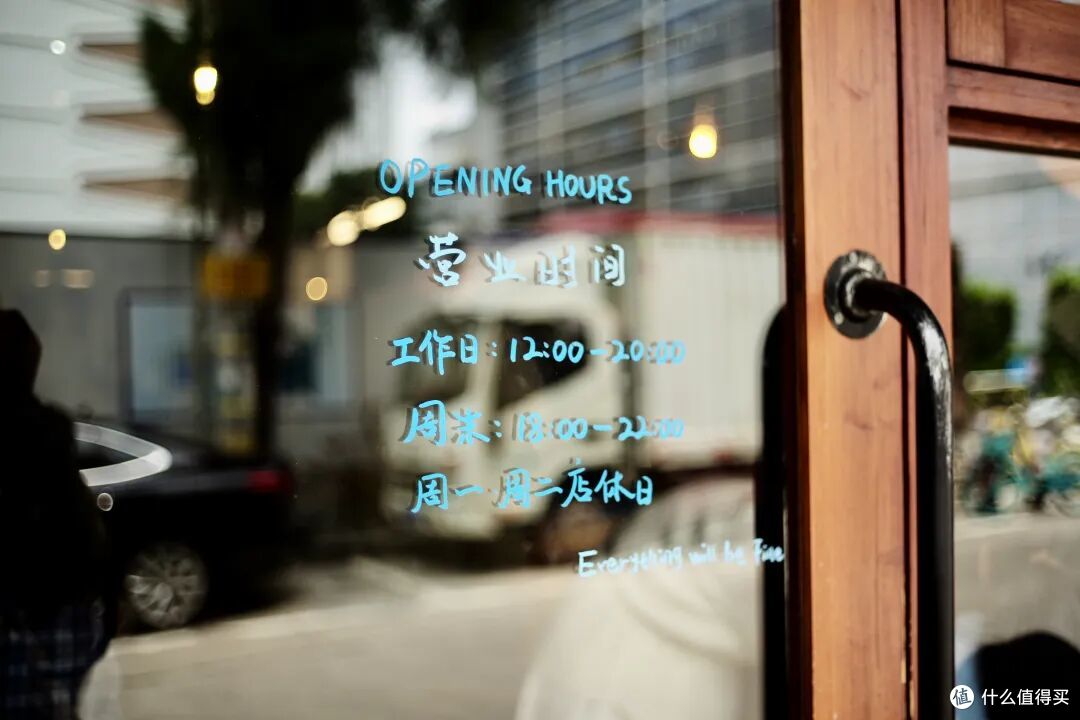 OPENING HOURS
营业时间
工作日:12:00-20:00
周末:18:00-22:00
周一 周二店休日
Everything will be Fine
值 什么值得买